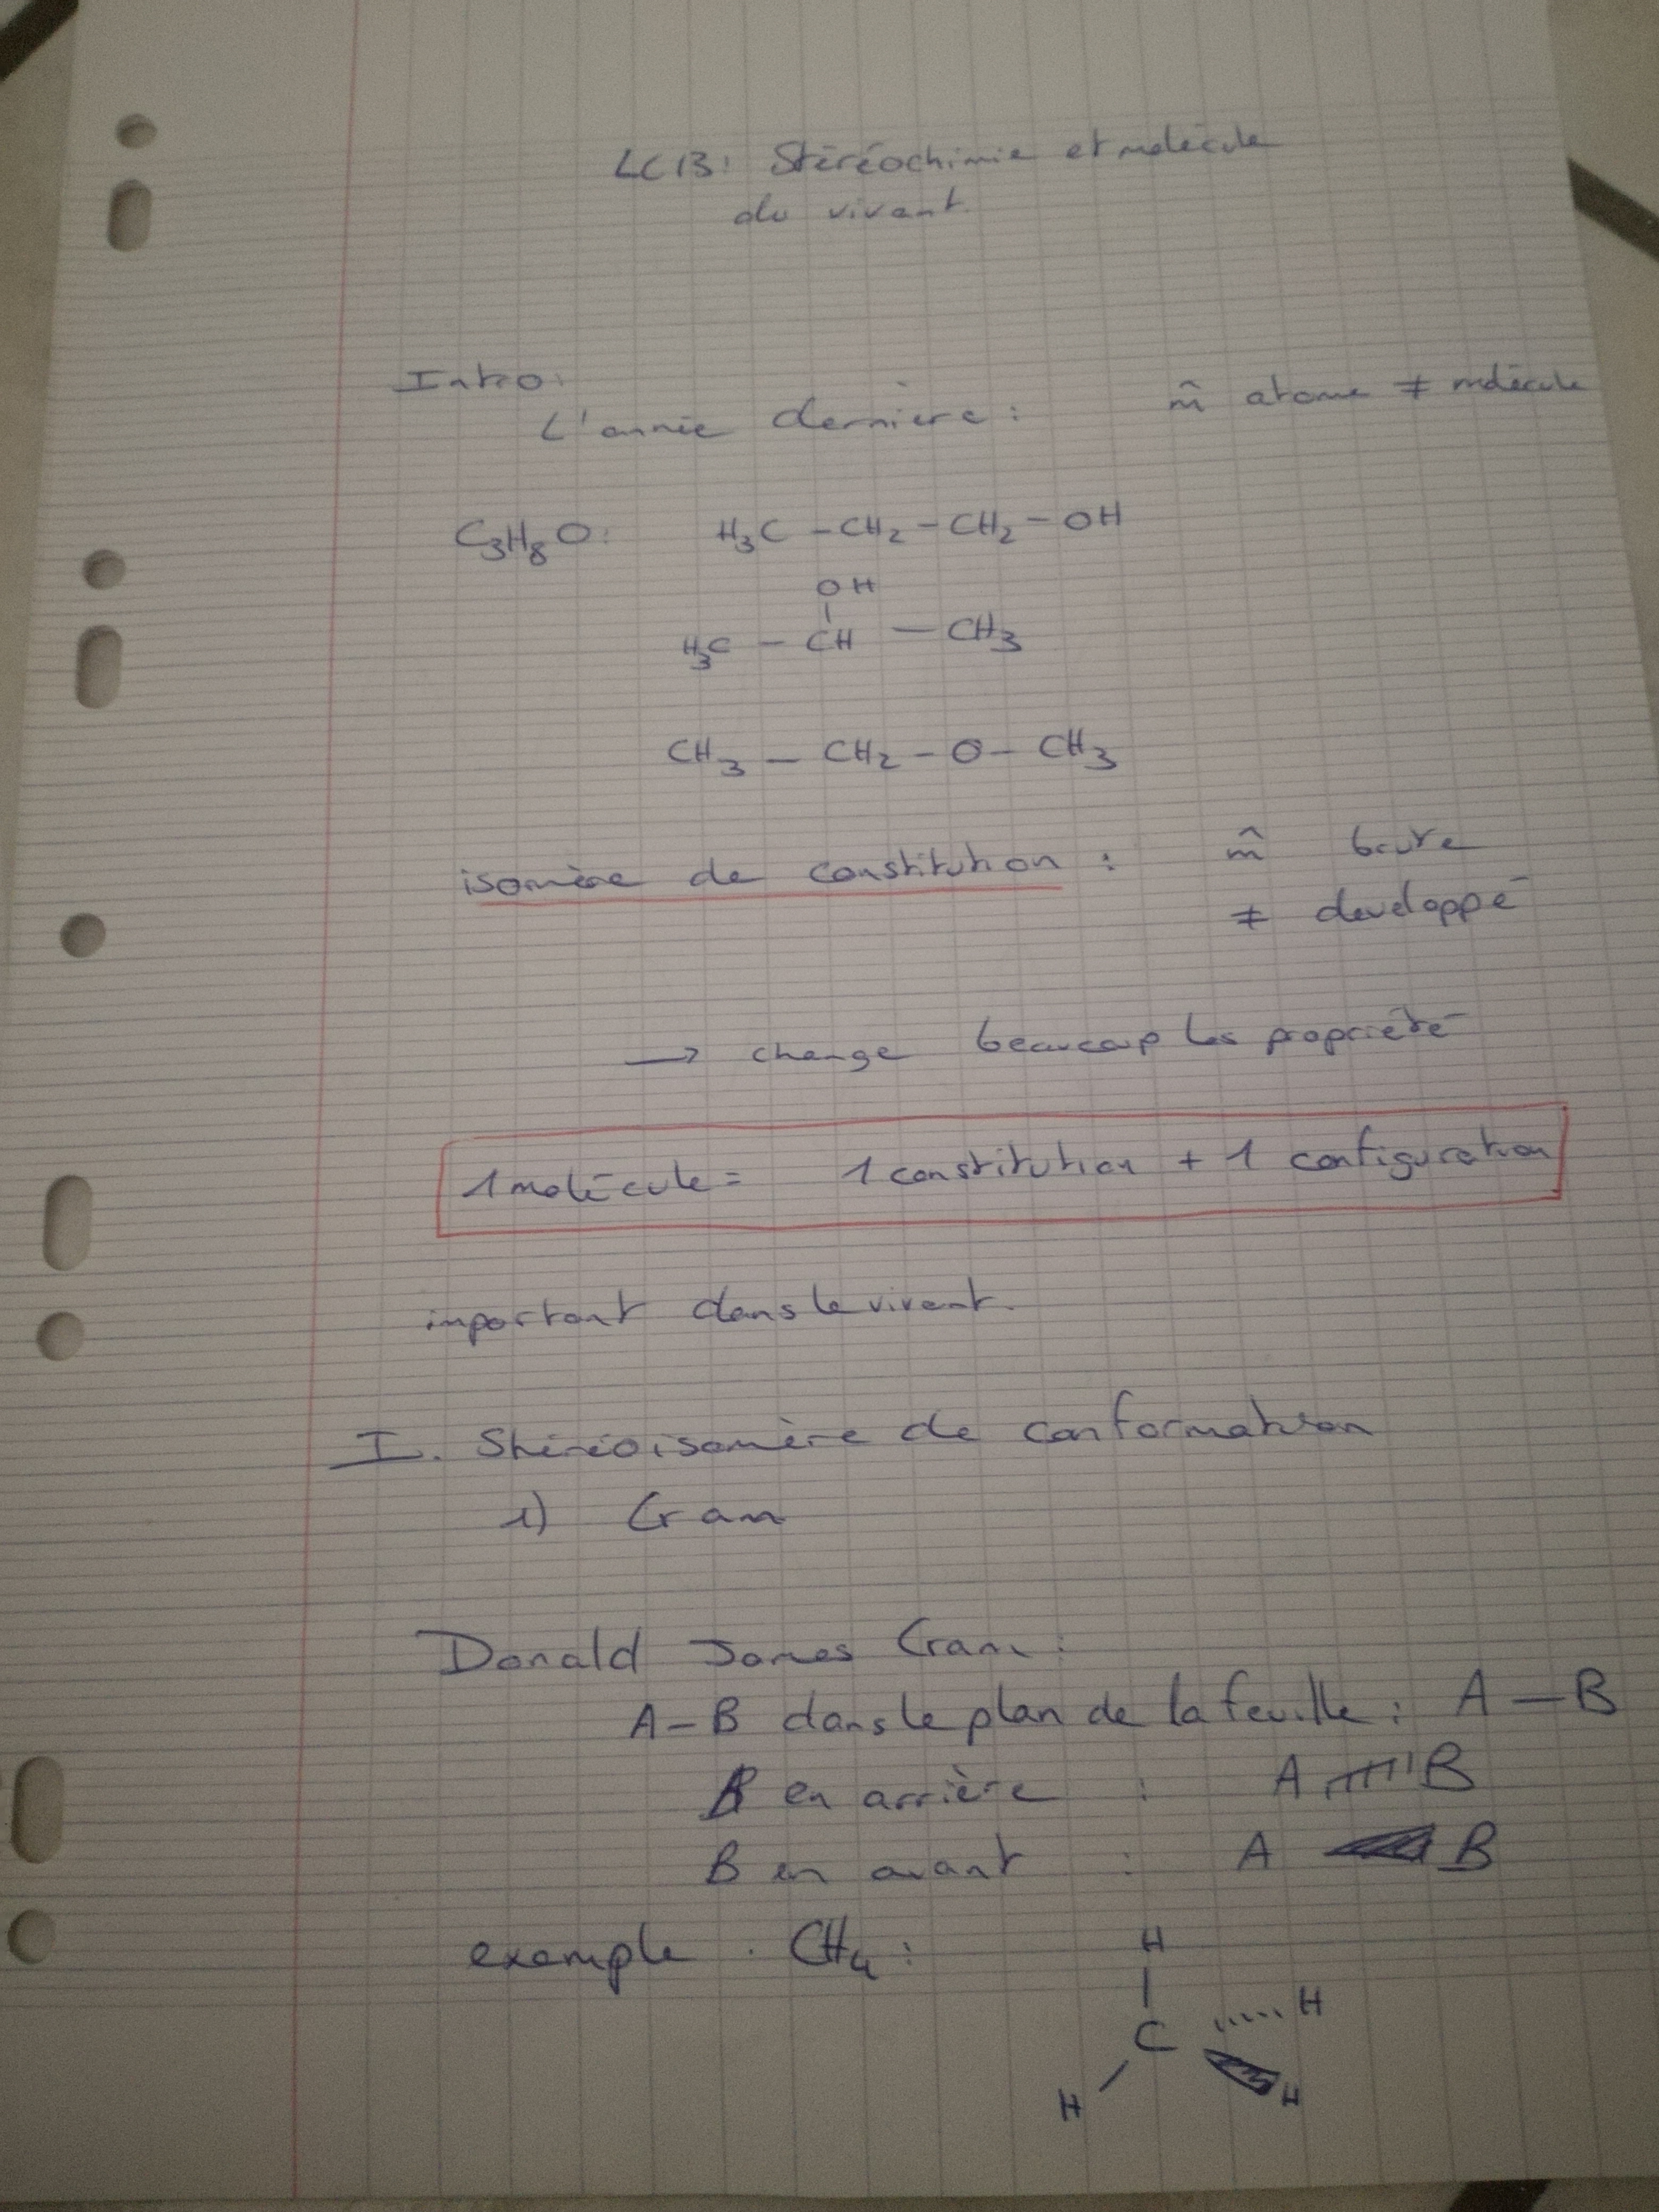 LC13: Stéréochimie et molécule
du vivant.
Intro:
L'année dernière : m̂ atome ≠ molécule
C₃H₈O: H₃C – CH₂ – CH₂ – OH
OH
|
H₃C – CH – CH₃
CH₃ – CH₂ – O – CH₃
isomère de constitution : m̂ brute
≠ developpé
→ change beaucoup les propriété
1 molécule = 1 constitution + 1 configuration
important dans le vivant.
I. Stéréoisomère de conformation
1) Cram
Donald James Cram :
A–B dans le plan de la feuille : A – B
B en arrière : A B
B en avant : A B
exemple . CH₄ :
H
H
C
H
H